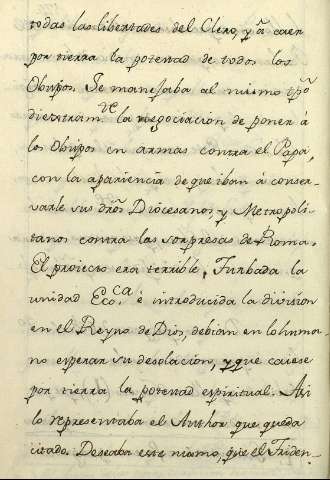 todas las libertades del Clero, y â caer
por tierra la potestad de todos los
Obispos. Se manejaba al mismo tpõ
diestram.te la negociacion de poner á
los Obispos en armas contra el Papa,
con la apariencia de que iban á conser-
varle sus drõs Diocesanos y Metropoli-
tanos contra las sorpresas de Roma.
El proiecto era terrible. Turbada la
unidad Ecc.ca é introducida la division
en el Reyno de Dios, debian en lo huma-
no esperar su desolacion, y que caiese
por tierra la potestad espiritual. Asi
lo representaba el Author que queda
citado. Deseaba este mismo, que el Triden-